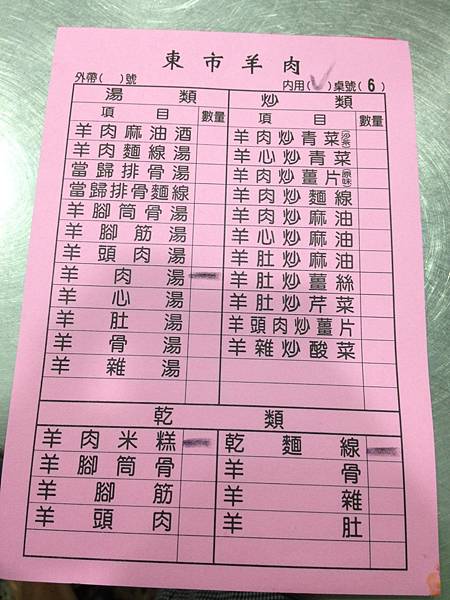 東市羊肉
外帶( )號 内用(✓)桌號(6)
湯類 炒類
項目 數量 項目 數量
羊肉麻油酒 羊肉炒青菜沙茶
羊肉麵線湯 羊心炒青菜
當歸排骨湯 羊肉炒薑片原味
當歸排骨麵線 羊肉炒麵線
羊腳筒骨湯 羊肉炒麻油
羊腳筋湯 羊心炒麻油
羊頭肉湯 羊肚炒麻油
羊肉湯 一 羊肚炒薑絲
羊心湯 羊肚炒芹菜
羊肚湯 羊頭肉炒薑片
羊骨湯 羊雜炒酸菜
羊雜湯
乾類
羊肉米糕 一 乾麵線 一
羊腳筒骨 羊骨
羊腳筋 羊雜
羊頭肉 羊肚